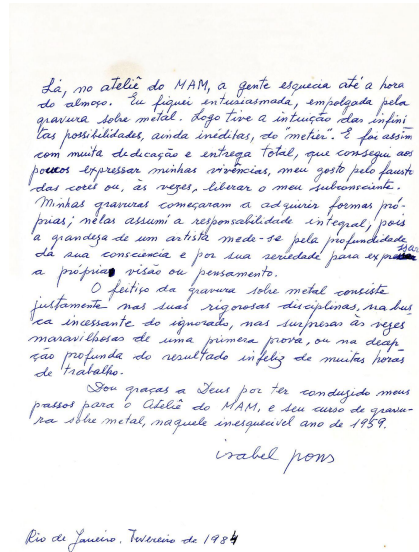 Lá, no ateliê do MAM, a gente esquecia até a hora
do almoço. Eu fiquei entusiasmada, empolgada pela
gravura sobre metal. Logo tive a intuição das infini
tas possibilidades, ainda inéditas, do "metier". E foi assim
com muita dedicação e entrega total, que consegui aos
poucos expressar minhas vivências, meu gosto pelo fausto
das cores ou, às vezes, liberar o meu subconsciente.
Minhas gravuras começaram a adquirir formas pró-
prias; nelas assumi a responsabilidade integral, pois
a grandeza de um artista mede-se pela profundidade
da sua consciencia e por sua seriedade para expressar
a própria visão ou pensamento.
O feitiço da gravura sobre metal consiste
justamente nas suas rigorosas disciplinas, na bus
ca incessante do ignorado, nas surpresas às vezes
maravilhosas de uma primeira prova, ou na decep
ção profunda do resultado infeliz de muitas horas
de trabalho.
Dou graças a Deus por ter conduzido meus
passos para o Ateliê do MAM, e seu curso de gravu-
ra sobre metal, naquele inesquecível ano de 1959.
isabel pons
Rio de Janeiro, Fevereiro de 1984